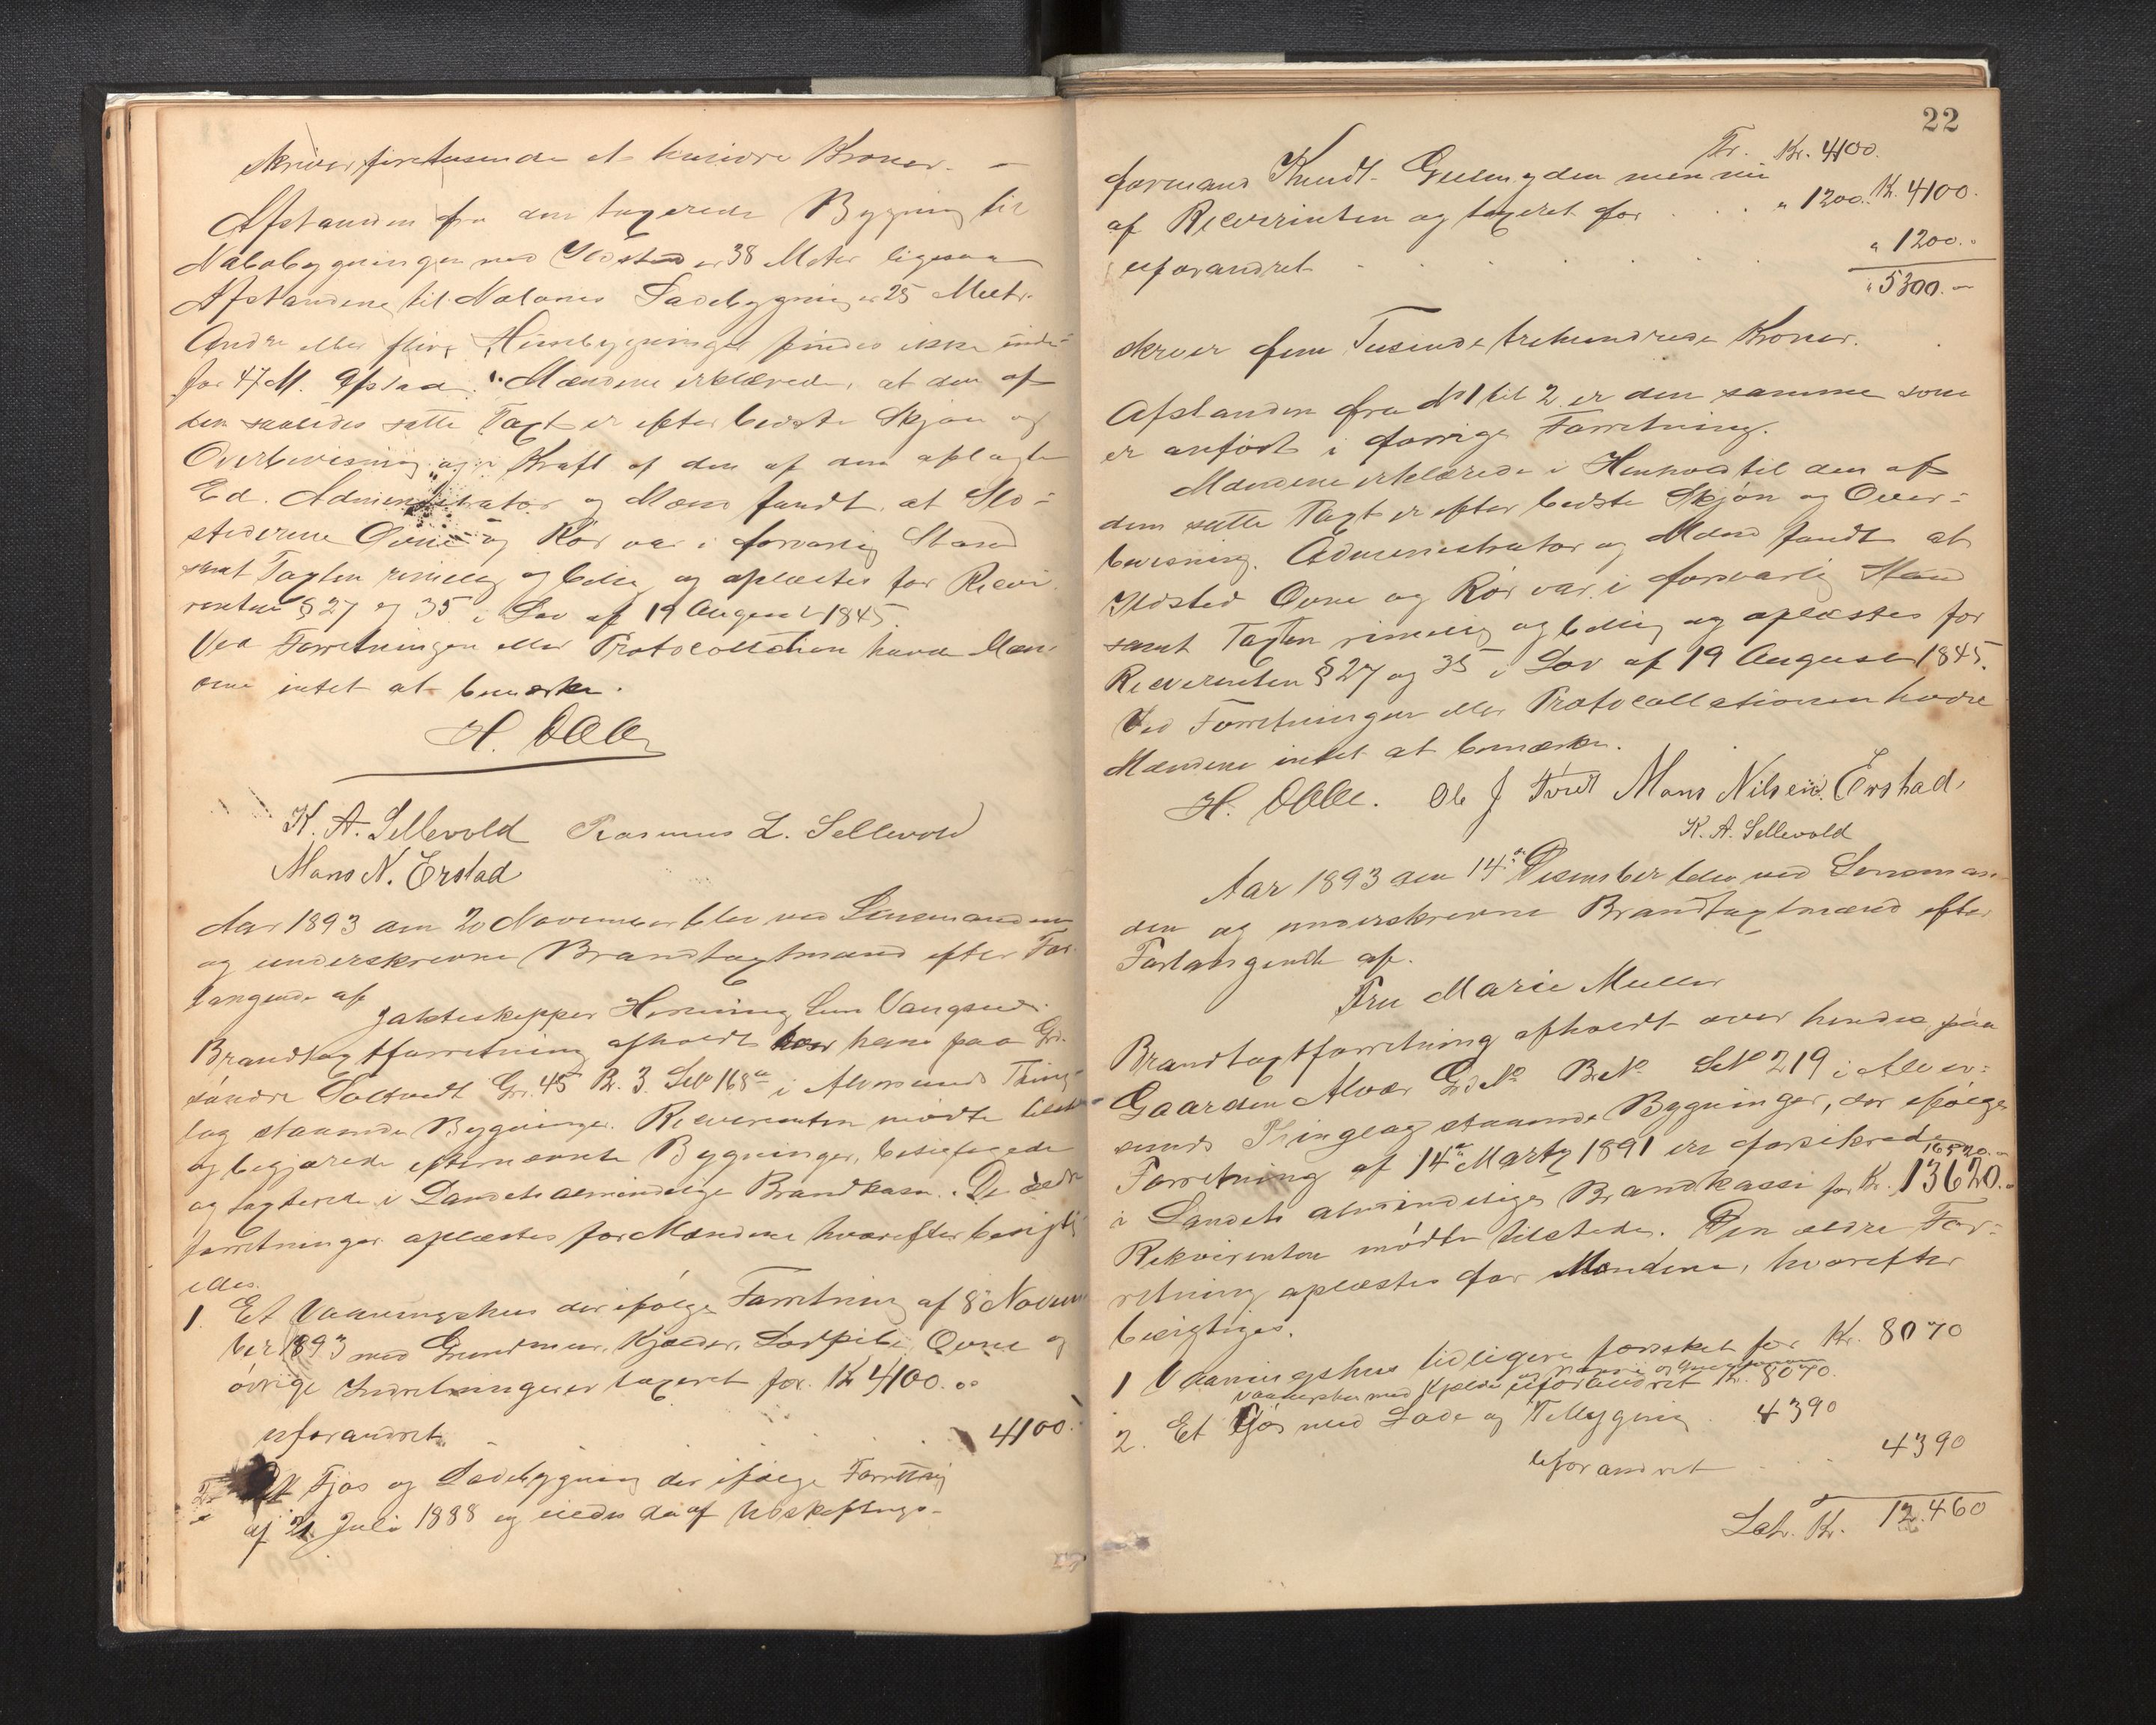 skriver firetusende et hundre Kroner. –
Afstanden fra den taxerede Bygning til
Nabobygningen med Ildsted er 38 Meter ligesaa
Afstandene til Naboens Ladebygning er 25 Metr.
Andre eller flere Huusbygninger findes ikke inden-
for 47 M. Afstand. Mændene erklærede, at den af
dem saaledes satte Taxt er efter bedste Skjøn og
Overbevisning og i Kraft af den af dem aflagte
Ed. Administrator og Mænd fandt, at Ild-
stederne Ovne og Rør var i forsvarlig Stand
samt Taxten rimelig og billig og oplæstes for Rekvi-
renten § 27 og 35 i Lov af 19 August 1845.
Ved Forretningen eller Protocollationen havde Mæn-
dene intet at bemærke.
K. A. Sellevold Rasmus L. Sellevold
Mons N. Erstad
Aar 1893 den 20 November blev ved Lensmanden
og underskrevne Brandtaxtmænd efter For-
langende af
Jakteskipper Henning Vangsund
Brandtaxtforretning afholdt over hans paa Gd.
søndre Soltvedt Gr. 45 B. 3 L№ 168a i Alversunds Thing-
lag staaende Bygninger. Rekvirenten mødte tilsted
og begjærede efternævnte Bygninger, besigtigede
og taxerede i Landets almindelige Brandkasse. De ældre
forretninger oplæstes for Mændene hvorefter besigti-
edes.
1. Et Vaaningshus der ifølge Forretning af 8 Novem-
ber 1893 med Grundmur, Kjælder, Ovne og
øvrige Indretninger er taxeret for. Kr 4100.00
uforandret 4100.
2. Et Fjøs og Ladebygning der ifølge Forretning
af 21 Juli 1888 og eiedes da af Udskiftnings-
22
Tr. Kr. 4100.
formand Knudt men nu
af Recvirenten og taxeret for . . . " 1200. Kr. 4100.
uforandret . . . . . " 1200..
" 5300.–
skriver fem Tusinde trehundrede Kroner.
Afstanden fra № 1 til 2 er den samme som
er anført i forrige Forretning.
Mændene erklærede i Henhold til den af
dem satte Taxt er efter bedste Skjøn og Over-
bevisning. Administrator og Mænd fandt at
Ildsted Ovne og Rør var i forsvarlig Stand
samt Taxten rimelig og billig og oplæstes for
Recvirenten § 27 og 35 i Lov af 19 August 1845.
Ved Forretningen eller Protocollationen havde
Mændene intet at bemærke.
Ole J Mons Nilsen Erstad
K. A. Sellevold
Aar 1893 den 14de Desember blev ved Lensman-
den og underskrevne Brandtaxtmænd efter
Forlangende af.
Fru Marie Muller
Brandtaxtforretning afholdt over hendes paa
Gaarden Alvær Gd№ B№ L№ 219 i Alver-
sunds Thinglag staaende Bygninger, der ifølge
Forretning af 14de Marty 1891 er forsikrede
16520.–
i Landets almindelige Brandkasse for Kr. 13620.–
Rekvirenten mødte tilstede. Den ældre For-
retning oplæstes for Mændene, hvorefter
besigtiges.
1 Vaaningshus tidligere forsikret for Kr. 8070
Vaaningshus med Kjælder uforandret Kr. 8070.
2. Et Fjøs med Lade og Tilbygning . 4390
uforandret . . 4390
Lat. Kr. 12.460